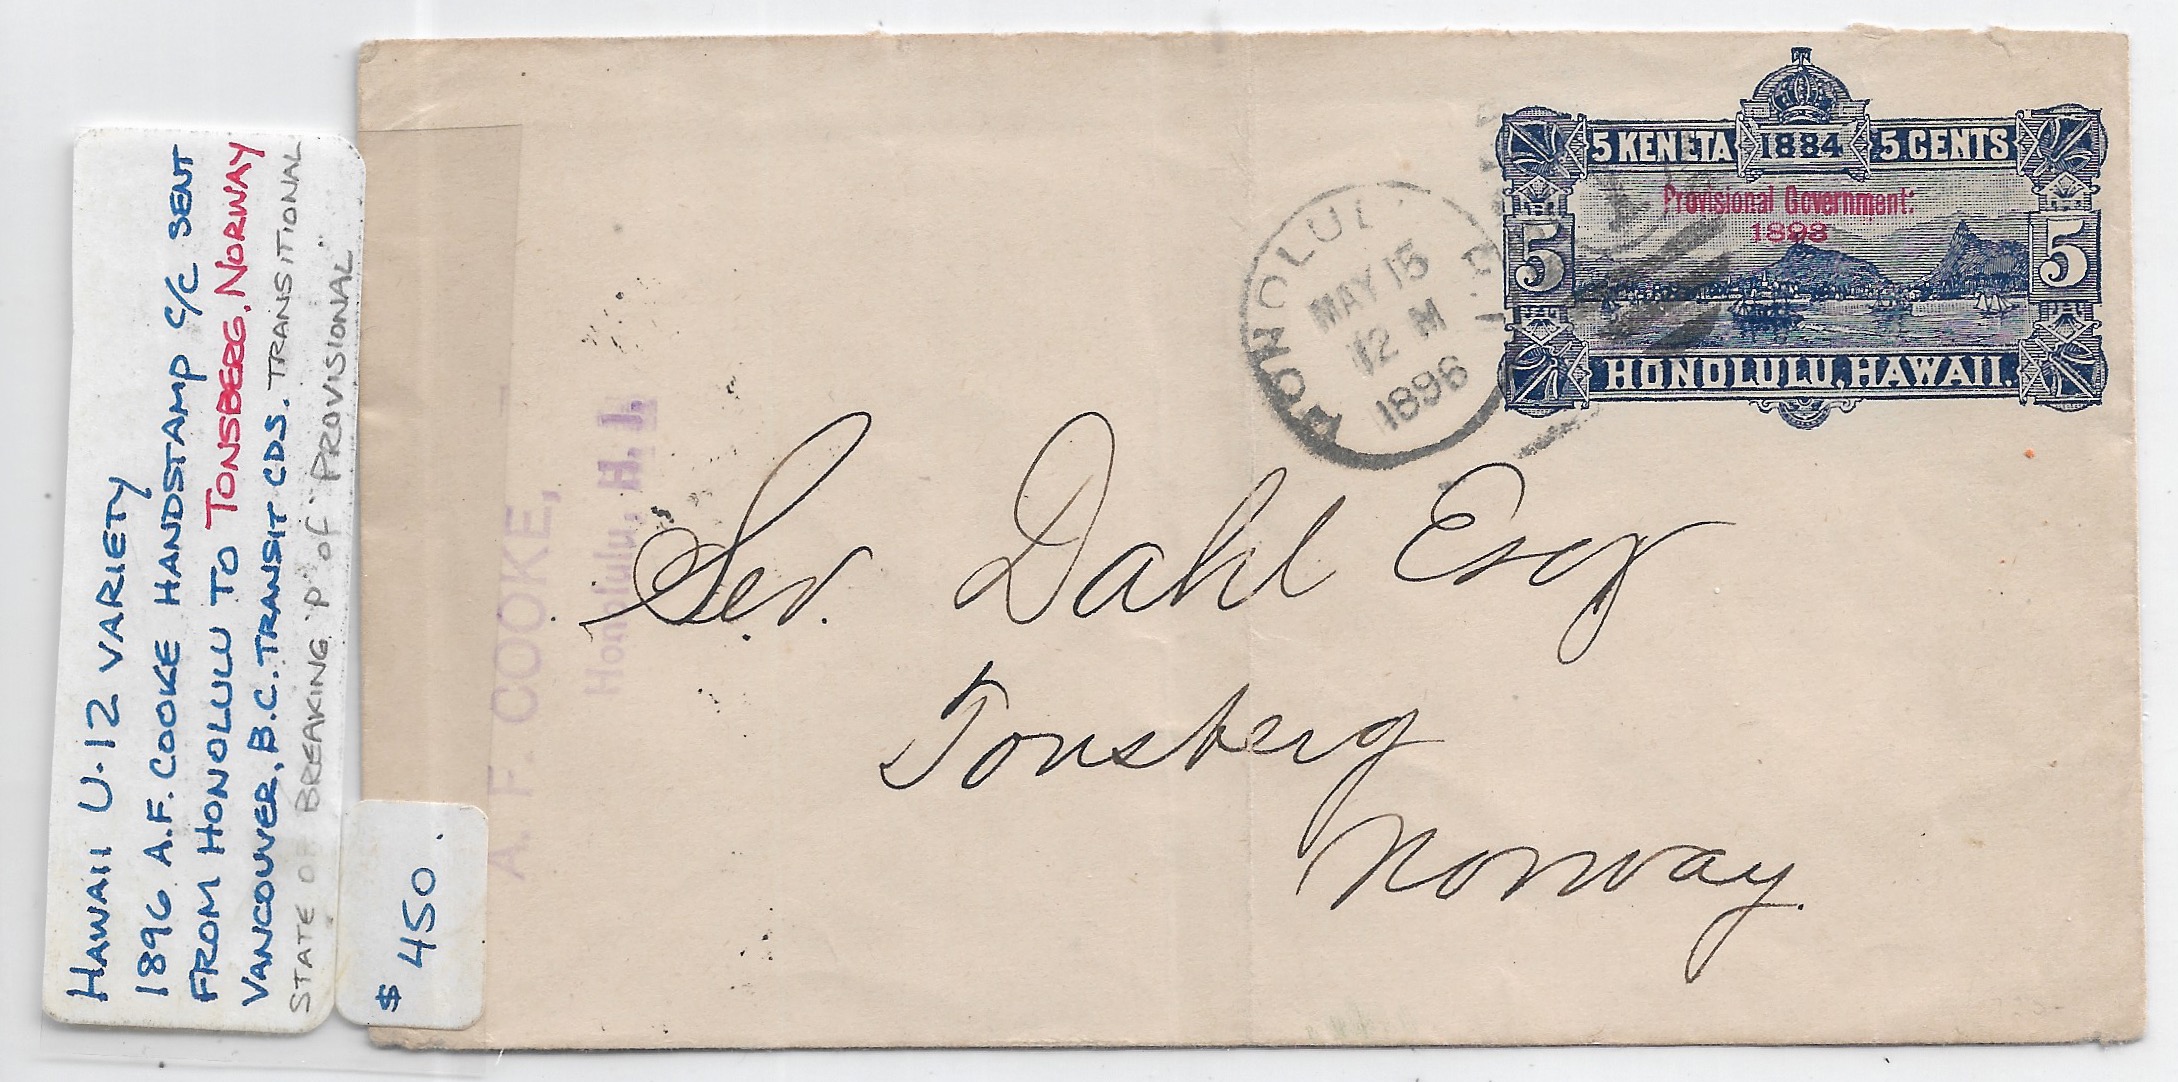 HAWAII U-12 VARIETY
1896 A.F. COOKE HANDSTAMP C/C SENT
FROM HONOLULU TO TONSBERG, NORWAY
VANCOUVER, B.C. TRANSIT CDS. TRANSITIONAL
STATE OF BREAKING "P" of "PROVISIONAL"
$ 450.
A. F. COOKE,
Honolulu, H. I.
HONOLULU
MAY 15
12 M
1896
5 KENETA 1884 5 CENTS
Provisional Government:
1893
5 5
HONOLULU, HAWAII.
Sev. Dahl Esq
Tonsberg
Norway.